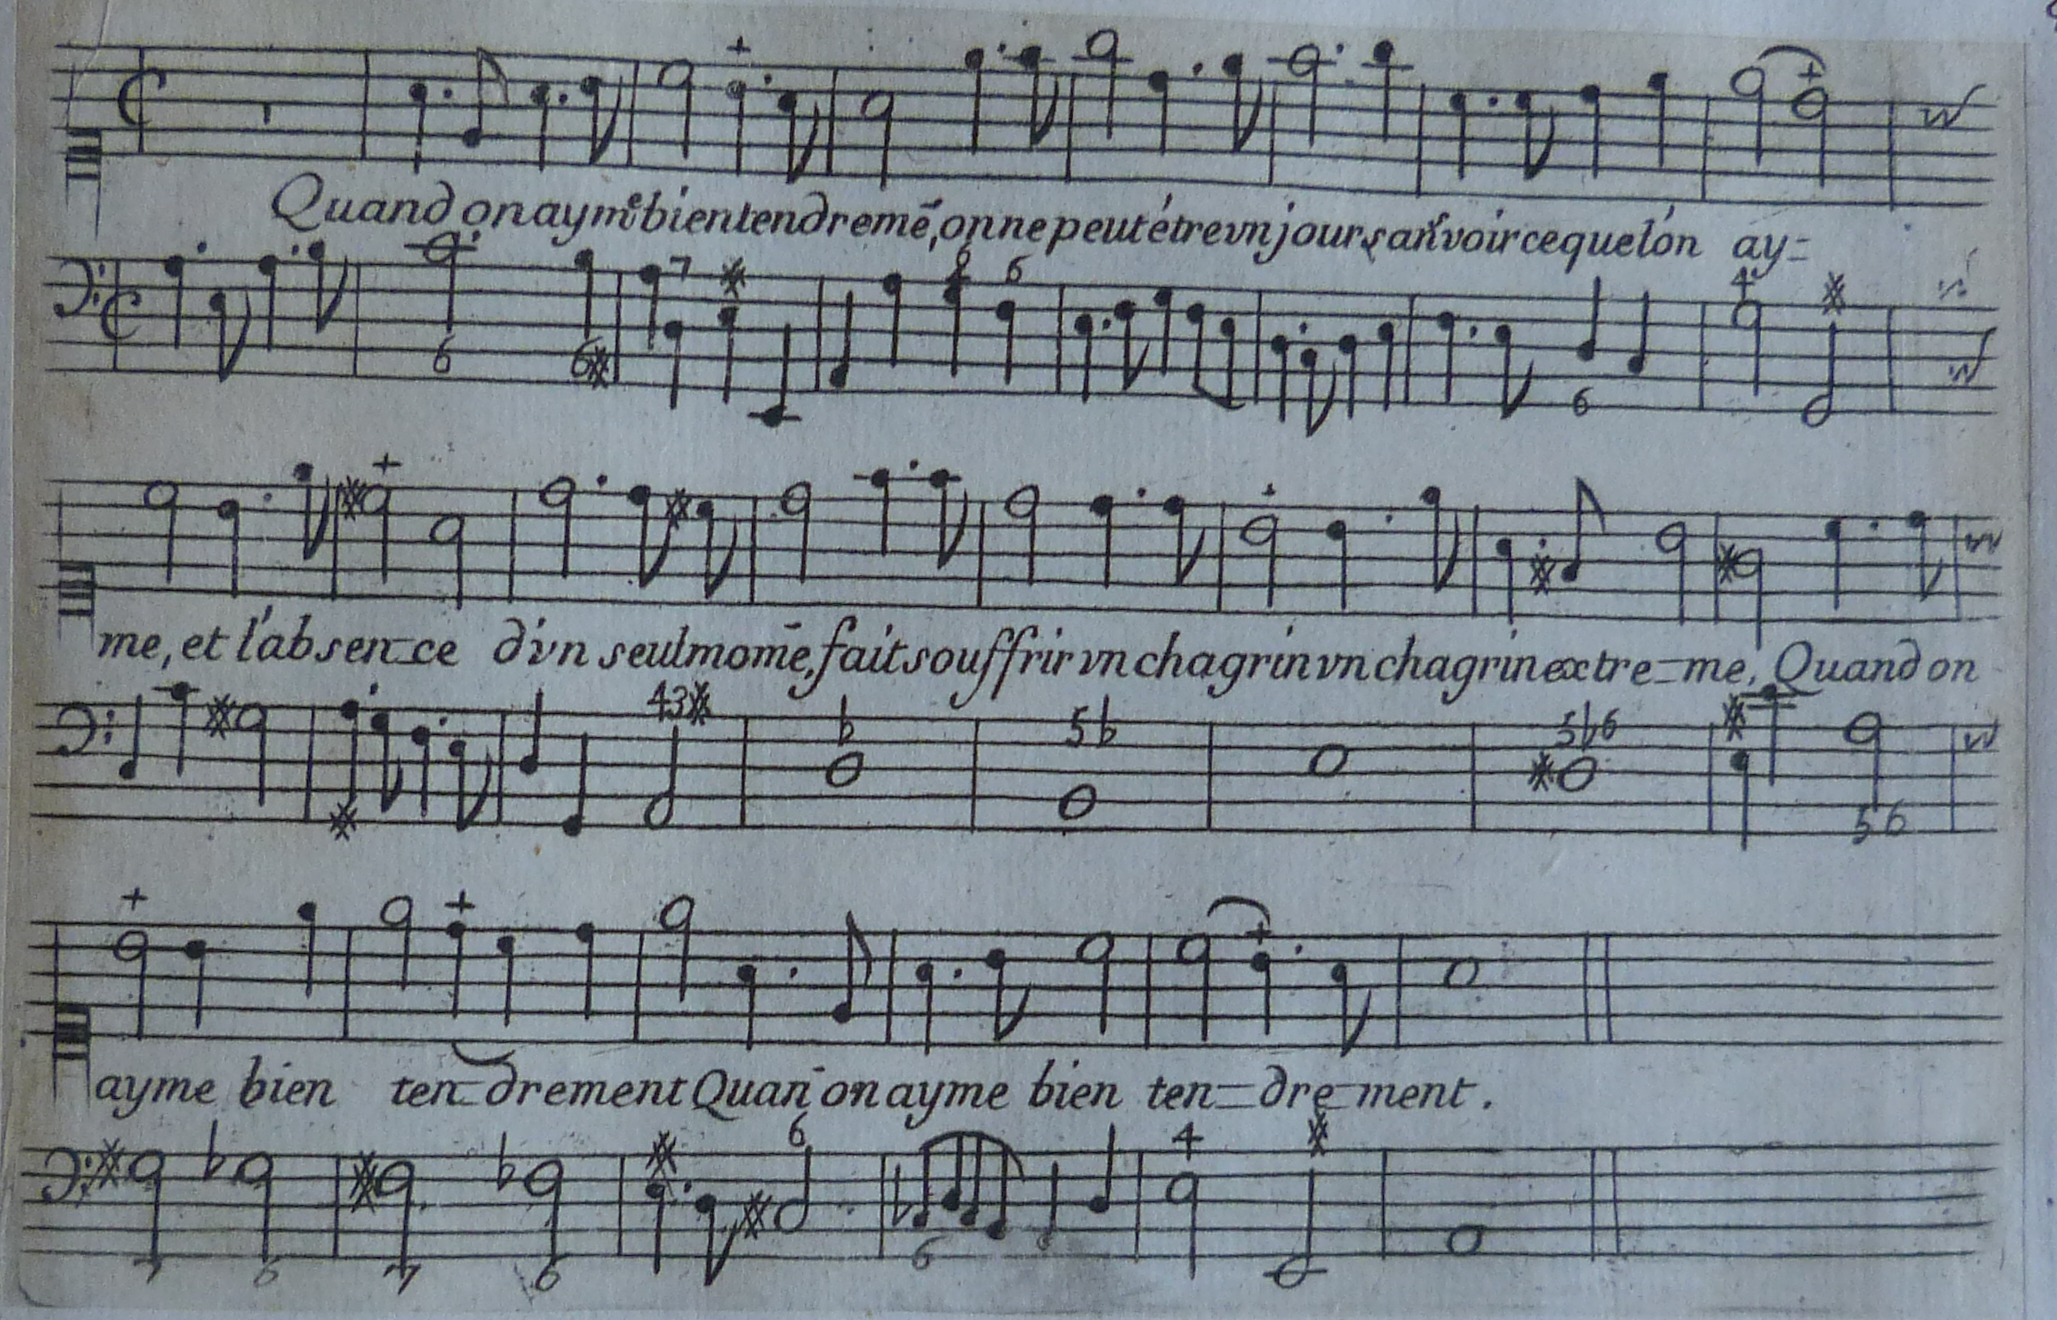 Quand on ayme bien tendremē, on ne peut étre vn jour sans voir ce que lón ay=
7 6
6 6 4 6
me, et l'absen=ce d'vn seul momē, fait souffrir vn chagrin vn chagrin extre=me, Quand on
43 ♭ 5♭ 5♭6
56
ayme bien ten=drement Quan on ayme bien ten=dre=ment.
6 4
7 6 7 6 6